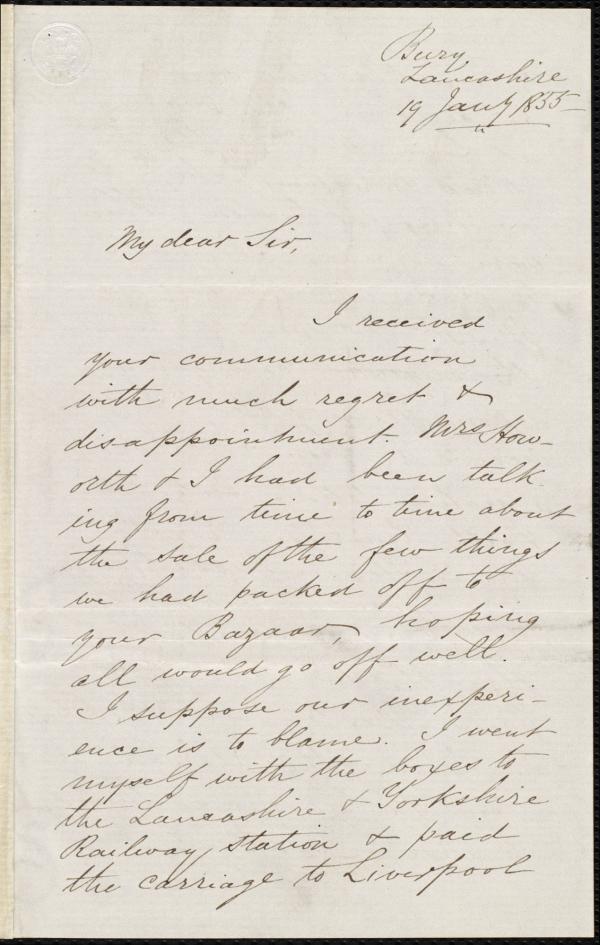 Bury
Lancashire
19 Jany 1855
My dear Sir,
I received
your communication
with much regret &
disappointment. Mrs How-
orth & I had been talk-
ing from time to time about
the sale of the few things
we had packed off to
your Bazaar, hoping
all would go off well.
I suppose our inexperi-
ence is to blame. I went
myself with the boxes to
the Lancashire & Yorkshire
Railway station & paid
the carriage to Liverpool